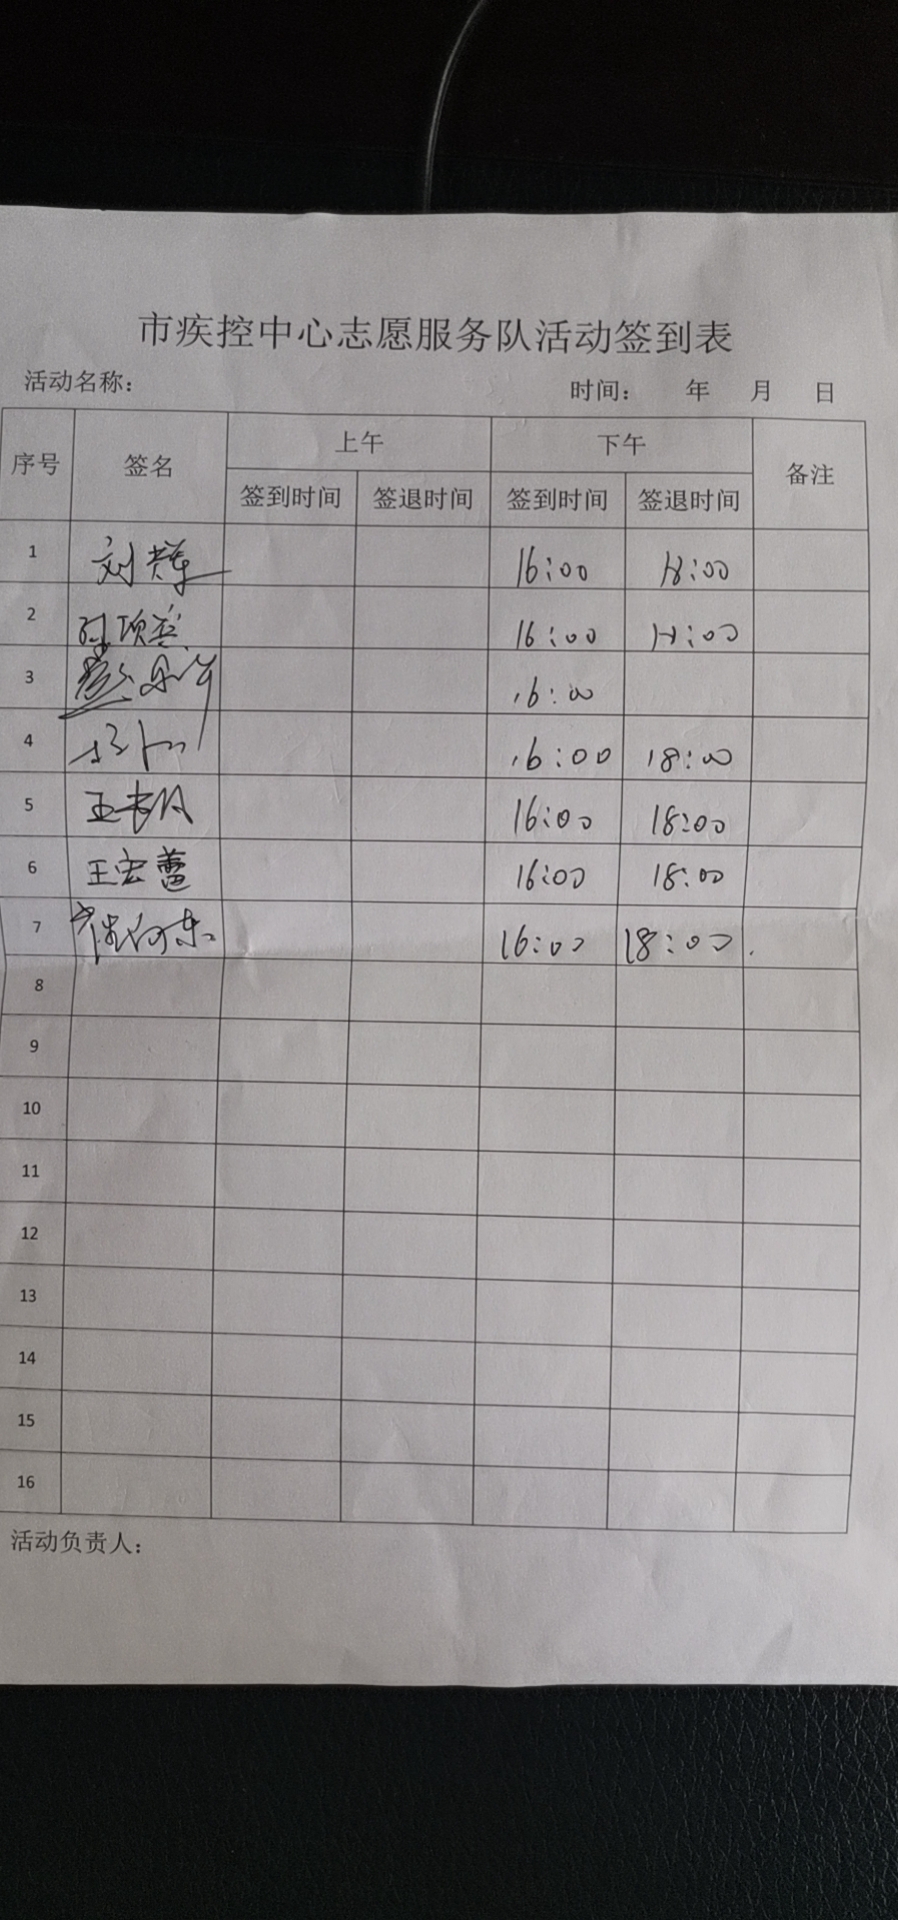 市疾控中心志愿服务队活动签到表
活动名称: 时间: 年 月 日
序号 签名 上午 下午 备注
签到时间 签退时间 签到时间 签退时间
1 刘 16:00 18:00
2 16:00 18:00
3 16:00
4 16:00 18:00
5 王 16:00 18:00
6 王宏蕾 16:00 18:00
7 16:00 18:00
8
9
10
11
12
13
14
15
16
活动负责人: